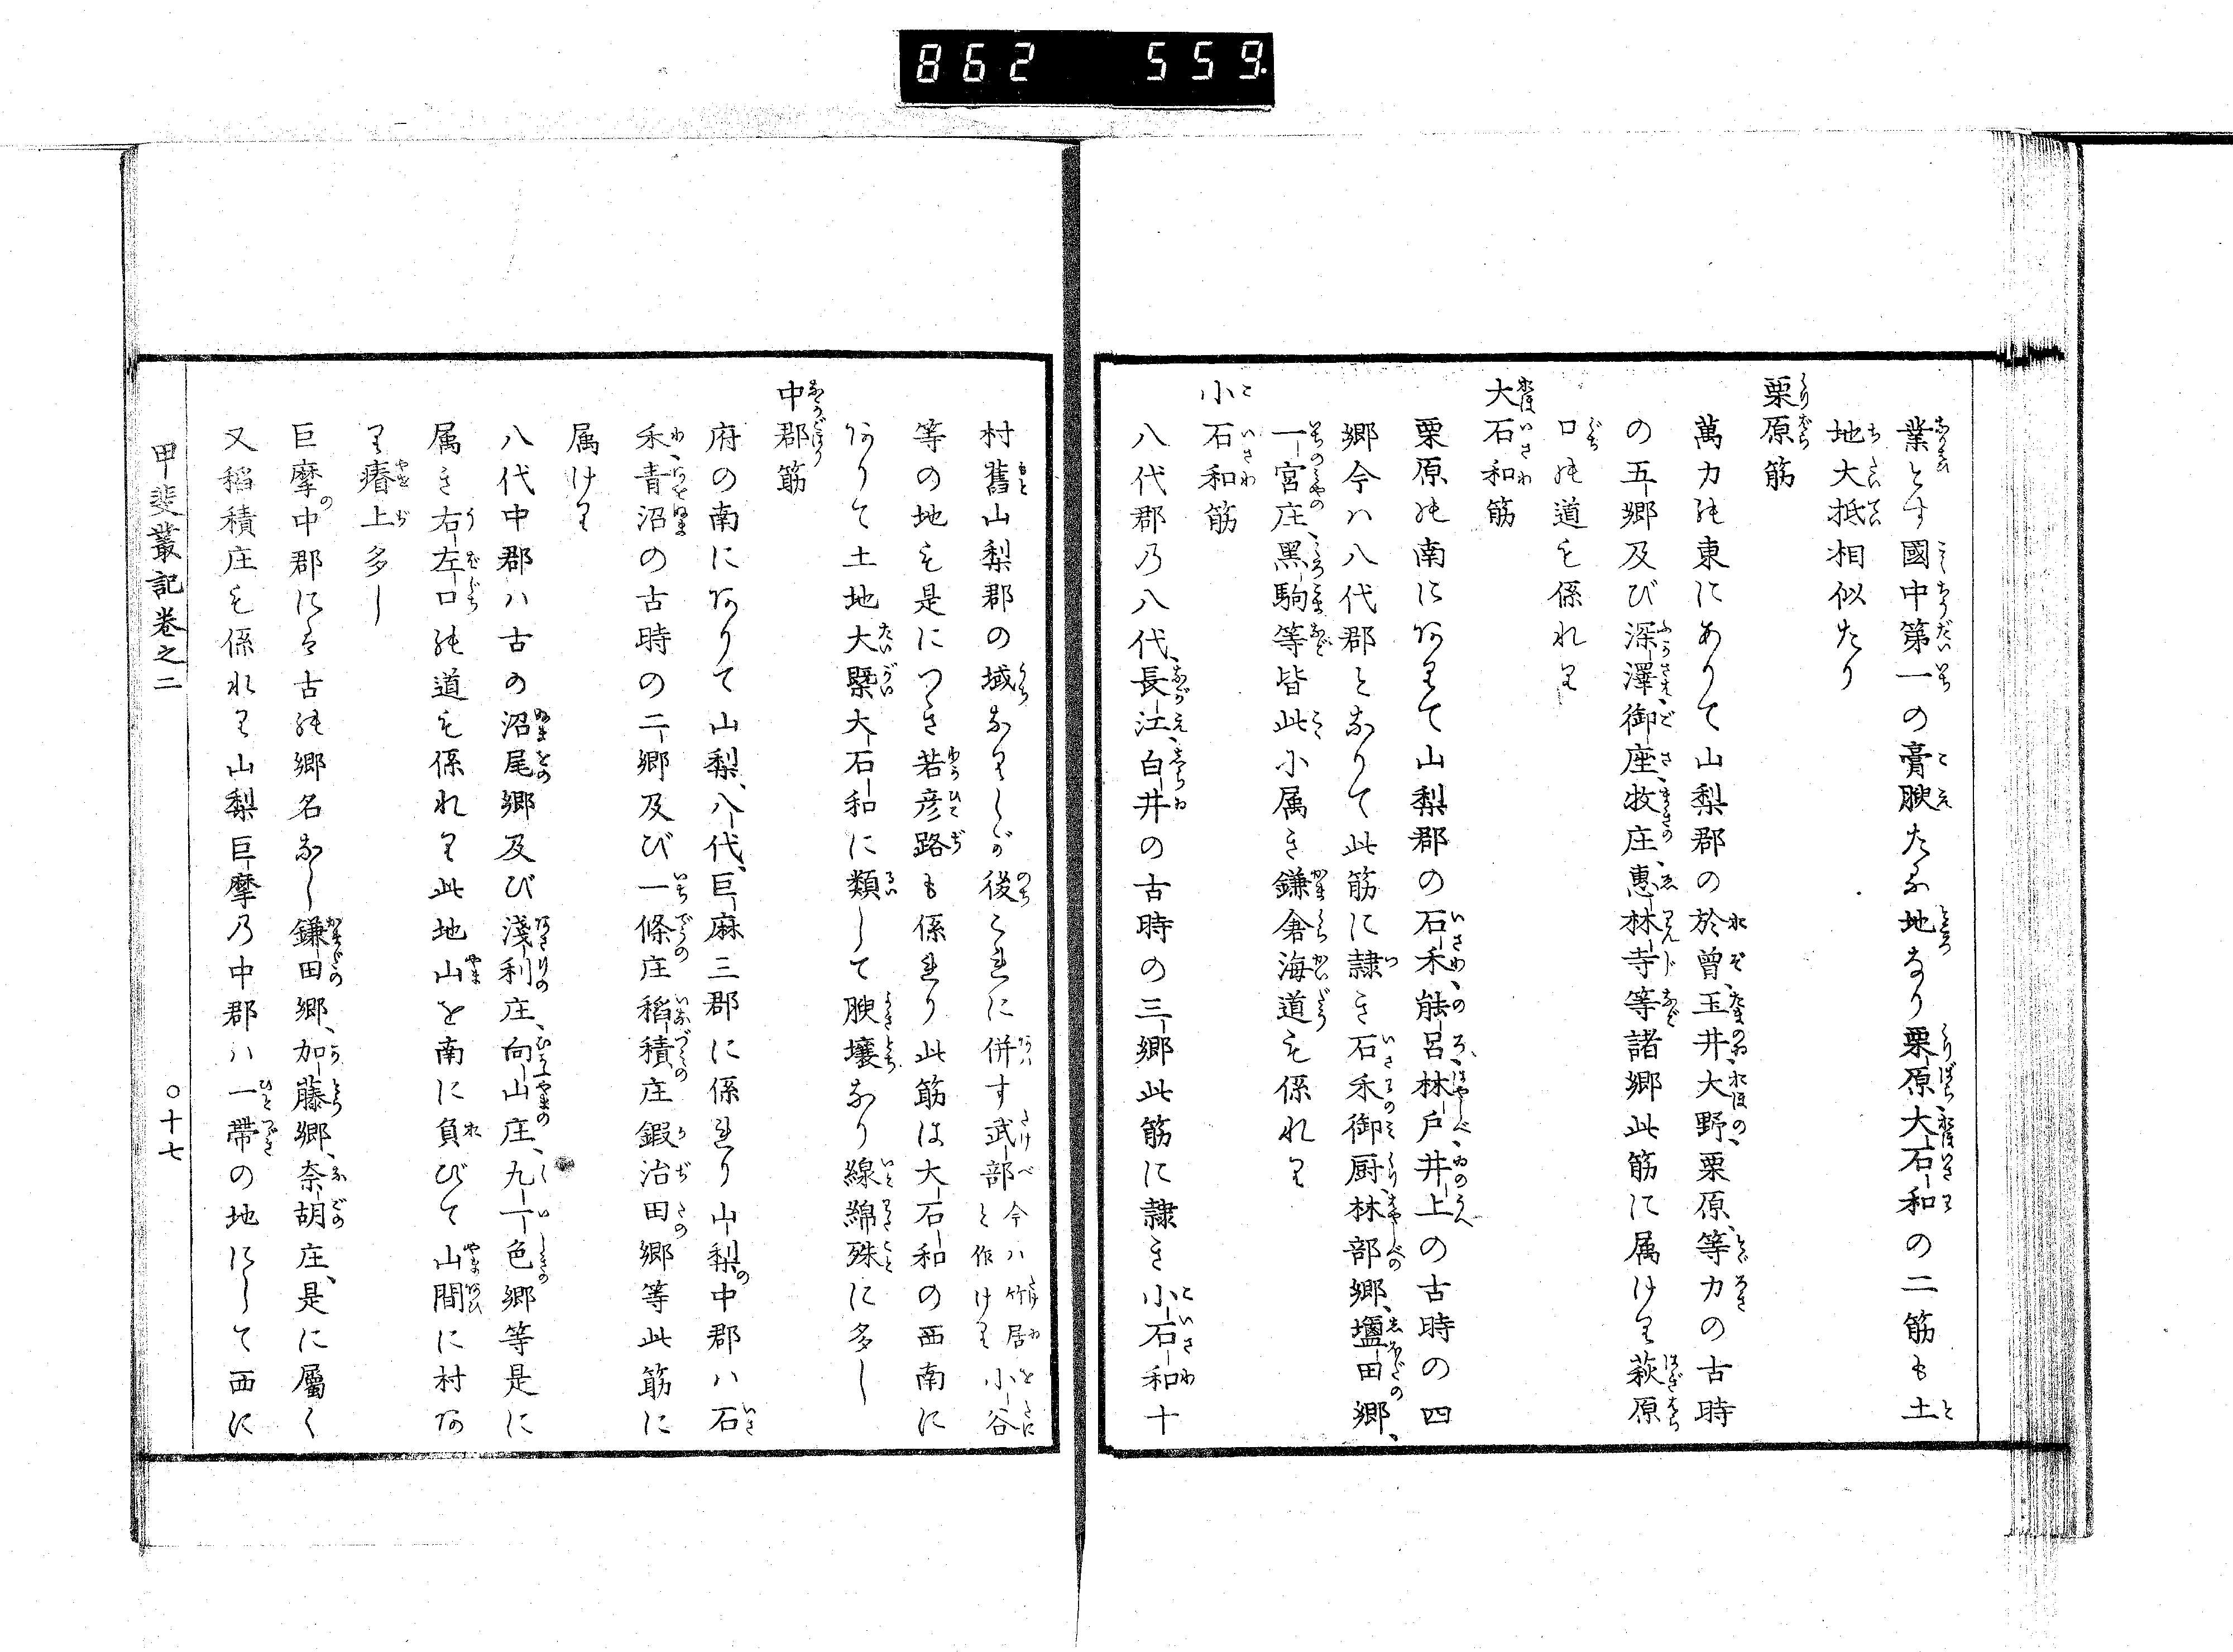 862 559.
業とす國中第一の膏腴たる地なり栗原大石和の二筋も土
地大抵相似たり
栗原筋
萬力の東にありて山梨郡の於曾、玉井、大野、栗原、等力の古時
の五郷及び深澤、御座、牧庄、惠林寺等諸郷此筋に属けり萩原
口の道を係れり
大石和筋
栗原の南にありて山梨郡の石禾、能呂、林戸、井上の古時の四
郷今ハ八代郡となりて此筋に隷き石禾御厨、林部郷、鹽田郷、
一宮庄、黒駒等皆此小属き鎌倉海道を係れり
小石和筋
八代郡乃八代、長江、白井の古時の三郷此筋に隷き小石和十
村舊山梨郡の域なりしが後これに併す武部今ハ竹居と作けり小谷
等の地を是につゞき若彦路も係れり此筋は大石和の西南に
ありて土地大槩大石和に類して腴壤なり線綿殊に多し
中郡筋
府の南にありて山梨、八代、巨麻三郡に係れり山梨の中郡ハ石
禾、青沼の古時の二郷及び一條庄稻積庄鍜冶田郷等此筋に
属けり
八代中郡ハ古の沼尾郷及び淺利庄、向山庄、九一色郷等是に
属き右左口の道を係れり此地山を南に負びて山間に村あ
り瘠土多し
巨摩の中郡にハ古の郷名なし鎌田郷、加藤郷、奈胡庄、是に屬く
又稻積庄を係れり山梨巨摩乃中郡ハ一帶の地にして西に
甲斐叢記巻之二 〇十七